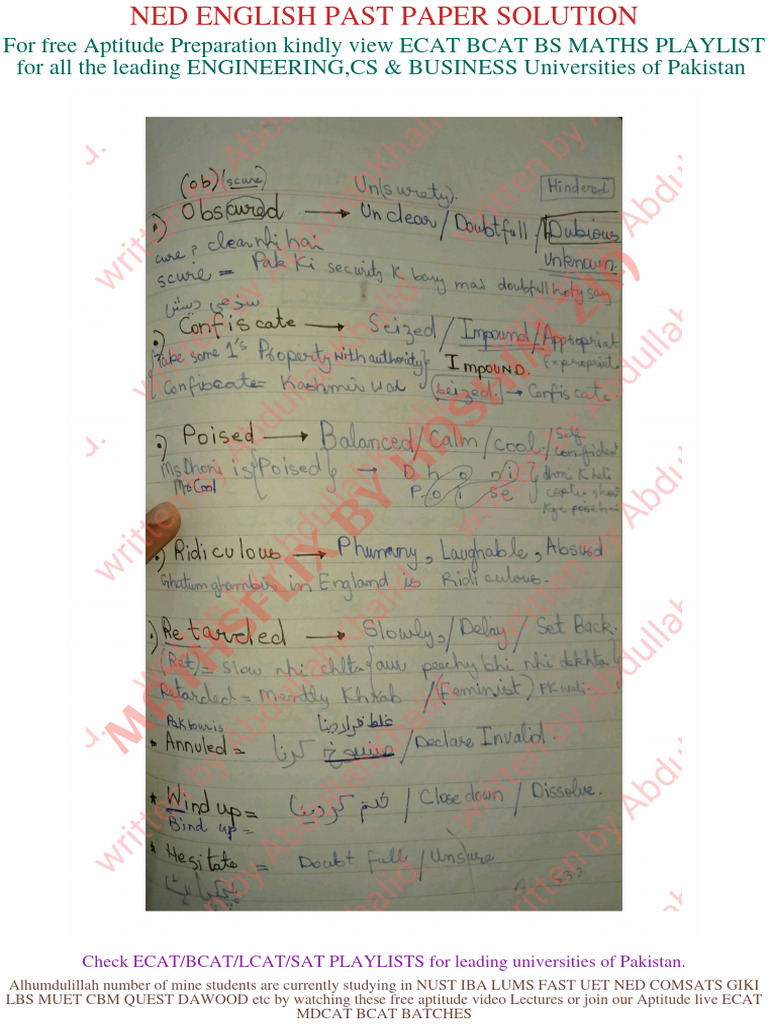 NED ENGLISH PAST PAPER SOLUTION
For free Aptitude Preparation kindly view ECAT BCAT BS MATHS PLAYLIST
for all the leading ENGINEERING,CS & BUSINESS Universities of Pakistan
(ob) (scure) Un(surety). Hindered
Obscured → Unclear / Doubtfull / Dubious
cure? clear nhi hai unknown.
scure = Pak Ki security K bary mai doubtfull hoty
Confiscate → Seized / Impound / Appropriat
take some 1's Property with authority} IMPOUND.
Confiscate = Kashmir wal (seized.) → Confiscate
Poised → Balanced / Calm / cool. / Self confident
Ms Dhoni is {Poised} → D h o n i
Mr Cool P o i s e
Ridiculous → Phunny, Laughable, Absurd
in England is Ridiculous.
Retarded → Slowly, / Delay / Set Back.
(Ret) = slow nhi chlta {aur peechy bhi nhi dekhta}
Retarded = mently Khrab / (Feminist) PK wali.
غلط قرار دینا
Annuled = منسوخ کرنا / Declare Invalid.
Wind up = ختم کر دینا / Close down / Dissolve.
Bind up =
Hesitate = Doubt full / Unsure
MATHSFLIX BY HDSHM
written by AbdullahKhalid
Check ECAT/BCAT/LCAT/SAT PLAYLISTS for leading universities of Pakistan.
Alhumdulillah number of mine students are currently studying in NUST IBA LUMS FAST UET NED COMSATS GIKI
LBS MUET CBM QUEST DAWOOD etc by watching these free aptitude video Lectures or join our Aptitude live ECAT
MDCAT BCAT BATCHES